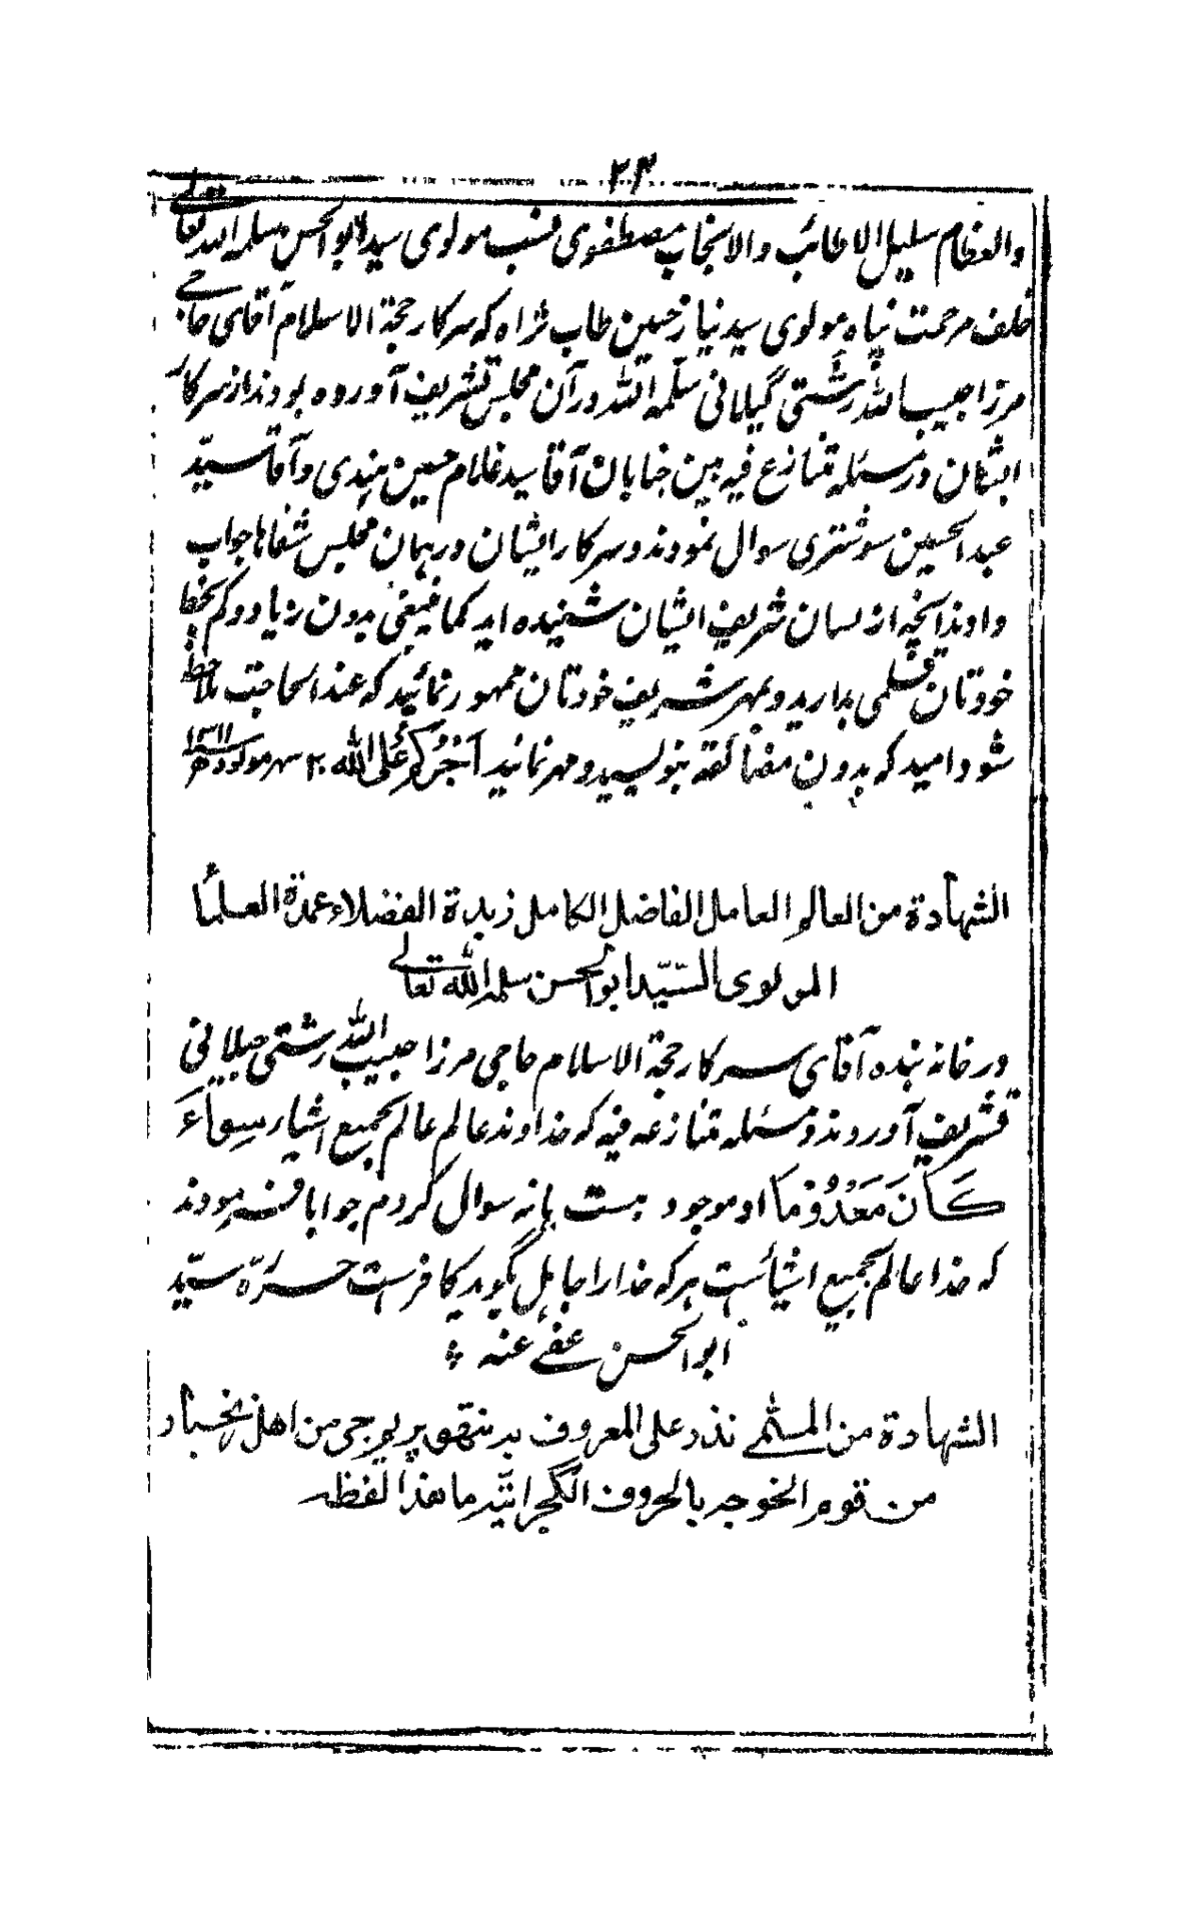 ۲۳
والعظام سلیل الاطائب والانجاب مصطفوی نسب مولوی سید ابو الحسن سلمه الله تعالی
خلف مرحمت پناه مولوی سید نیاز حسین طاب ثراه که سرکار حجة الاسلام آقای حاجی
مرزا حبیب الله رشتی گیلانی سلّمه الله درآن مجلس تشریف آورده بودند از سرکار
ایشان در مسئله متنازع فیه بین جنابان آقا سید غلام حسین هندی و آقا سیّد
عبد الحسین سوشتری سوال نمودند و سرکار ایشان در همان مجلس شفاها جواب
دادند آنچه از لسان شریف ایشان شنیده اید کما ینبغی بدون زیاد و کم بخط
خودتان قلمی بدارید و بمهر شریف خودتان ممهور نمائید که عند الحاجت ملاحظه
شود امید که بدون مضائقه بنویسید و مهر نمائید آجرکم علی الله ۲۰ سهر مولود ۱۳۱۱ه
الشهادة من العالم العامل الفاضل الکامل زبدة الفضلاء عمدة العلماء
المولوی السّیّد ابو الحسن سلمه الله تعالی
در خانه بنده آقای سرکار حجة الاسلام حاجی مرزا حبیب الله رشتی جیلانی
تشریف آوردند و مسئله متنازعه فیه که خداوند عالم عالم بجمیع اشیاء سواء
کان معدوما او موجود هست یا نه سوال کردم جوابا فرمودند
که خدا عالم بجمیع اشیائست هرکه خدا را جاهل بگوید کافرست حرّره سیّد
ابو الحسن عفی عنه
الشهادة من المسمّی نذر علی المعروف بدینقو پریرجی من اهل زنجبار
من قوم الخوجه بالحروف الگجراتیّه ما هذا لفظه